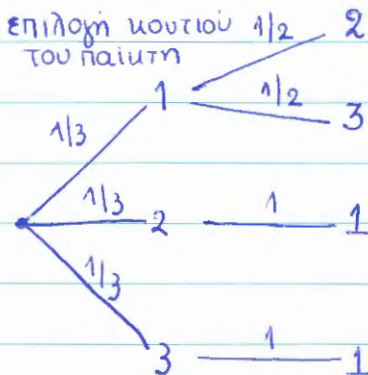 επιλογή κουτιού
του παίκτη
1/2 2
1 1/2 3
1/3
1/3 2 1 1
1/3
3 1 1